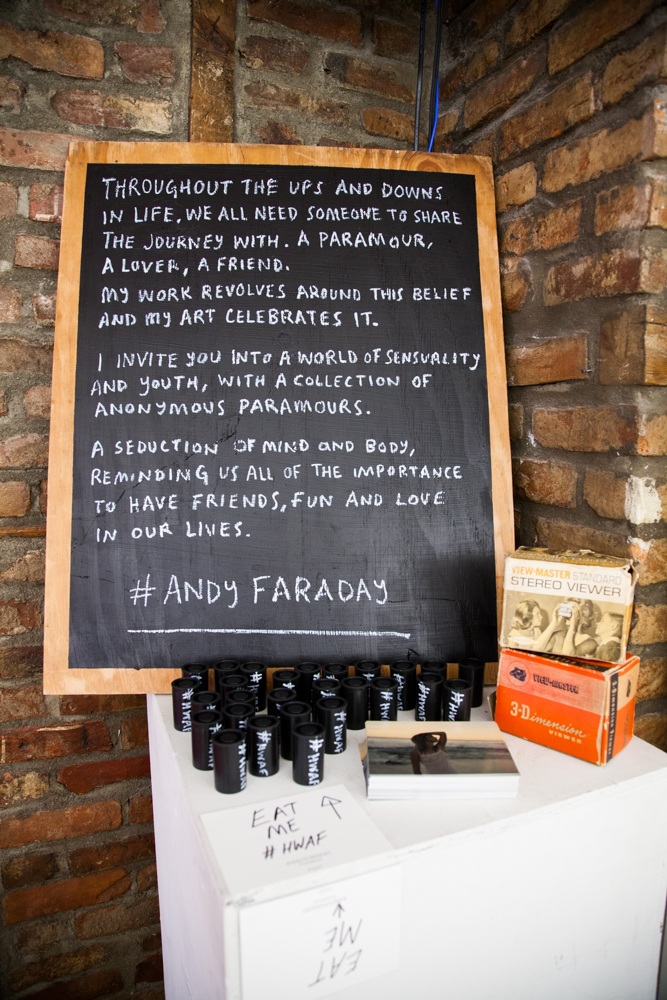 THROUGHOUT THE UPS AND DOWNS
IN LIFE, WE ALL NEED SOMEONE TO SHARE
THE JOURNEY WITH. A PARAMOUR,
A LOVER, A FRIEND.
MY WORK REVOLVES AROUND THIS BELIEF
AND MY ART CELEBRATES IT.
I INVITE YOU INTO A WORLD OF SENSUALITY
AND YOUTH, WITH A COLLECTION OF
ANONYMOUS PARAMOURS.
A SEDUCTION OF MIND AND BODY,
REMINDING US ALL OF THE IMPORTANCE
TO HAVE FRIENDS, FUN AND LOVE
IN OUR LIVES.
#ANDY FARADAY
VIEW-MASTER STANDARD
STEREO VIEWER
VIEW-MASTER
3-Dimension
VIEWER
#HWAF
#HWAF
EAT
ME
#HWAF
EAT
ME